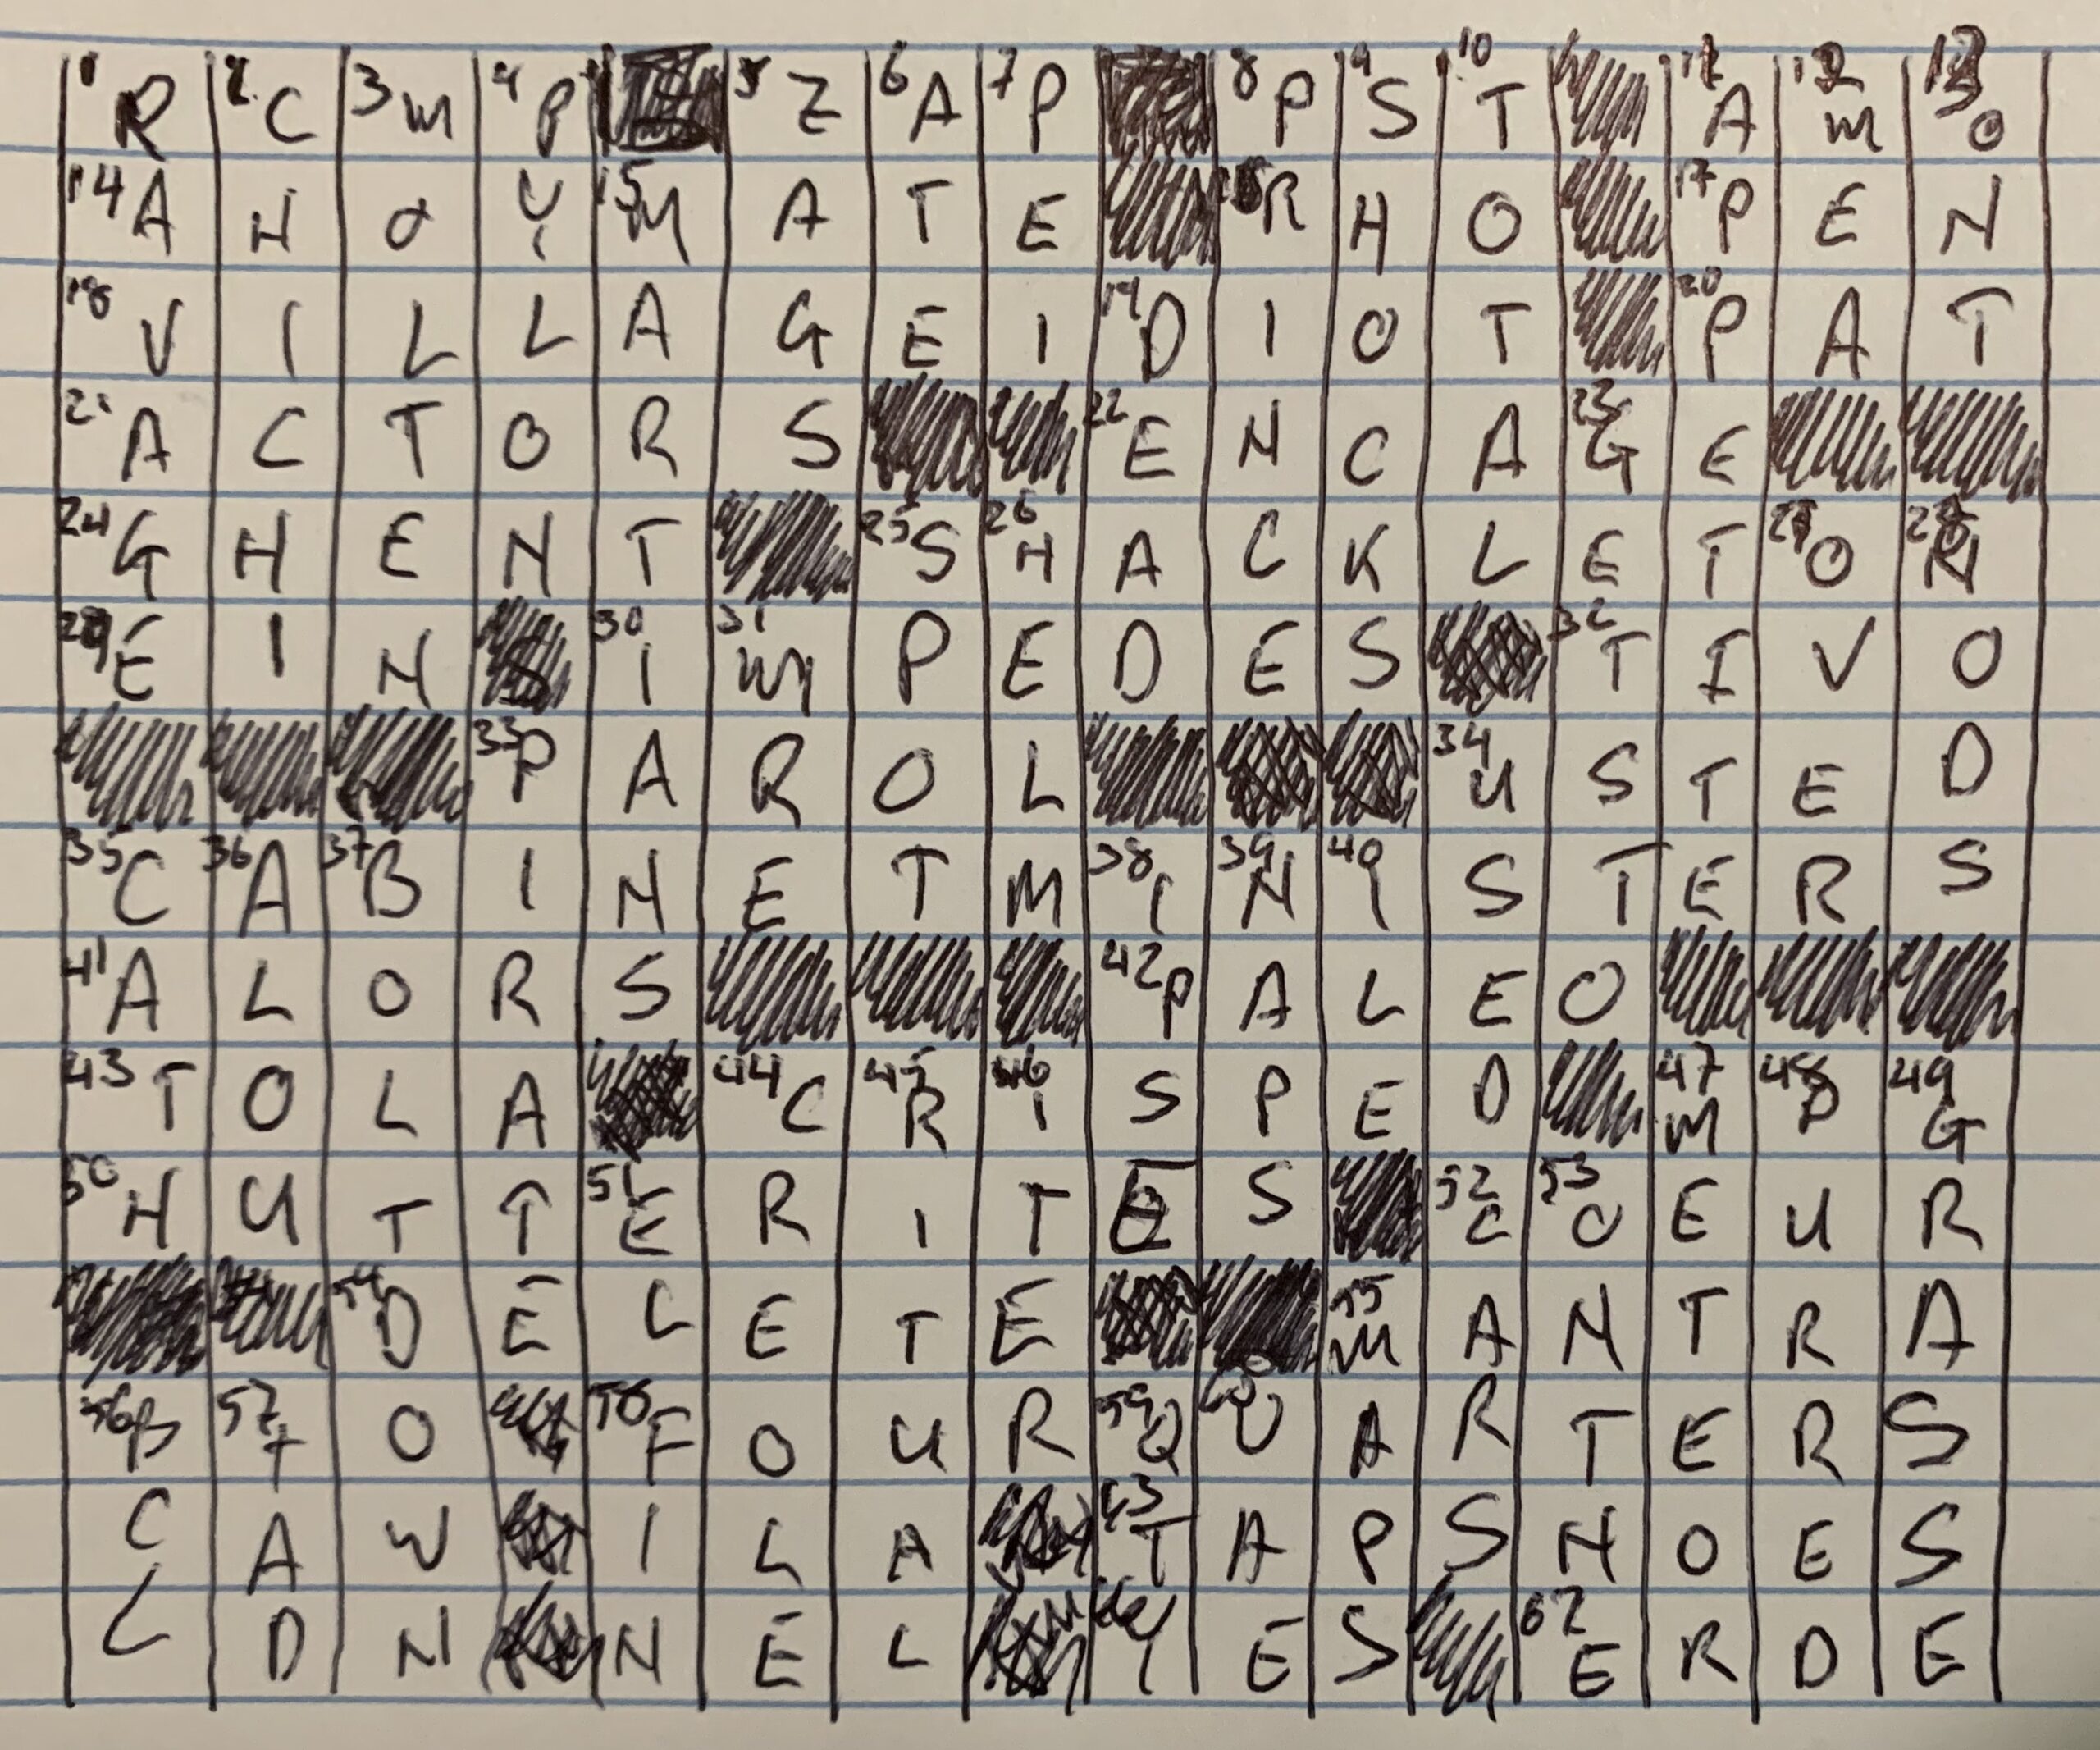 1R 2C 3M 4P 5Z 6A 7P 8P 9S 10T A M O
14A N O Y 15M A T E R H O 17P E N
18V I L L A G E I 19D I O T 20P A T
21A C T O R S 22E N C A 23G E
24G H E N T 25S 26H A C K L E T O N
29E I N 30I 31M P E D E S 32T I V O
33P A R O L 34U S T E D
35C 36A 37B I N E T M 38I 39N 40I S T E R S
41A L O R S 42P A L E O
43T O L A 44C 45R 46I S P E D 47M 48P 49G
50H U T T 51E R I T E S 52C 53O E U R
54D E L E T E 55M A N T R A
56B 57T O F O U R 59Q 60U A R T E R S
C A W I L A 63T A P S H O E S
L D N N E L Y E S 62E R D E